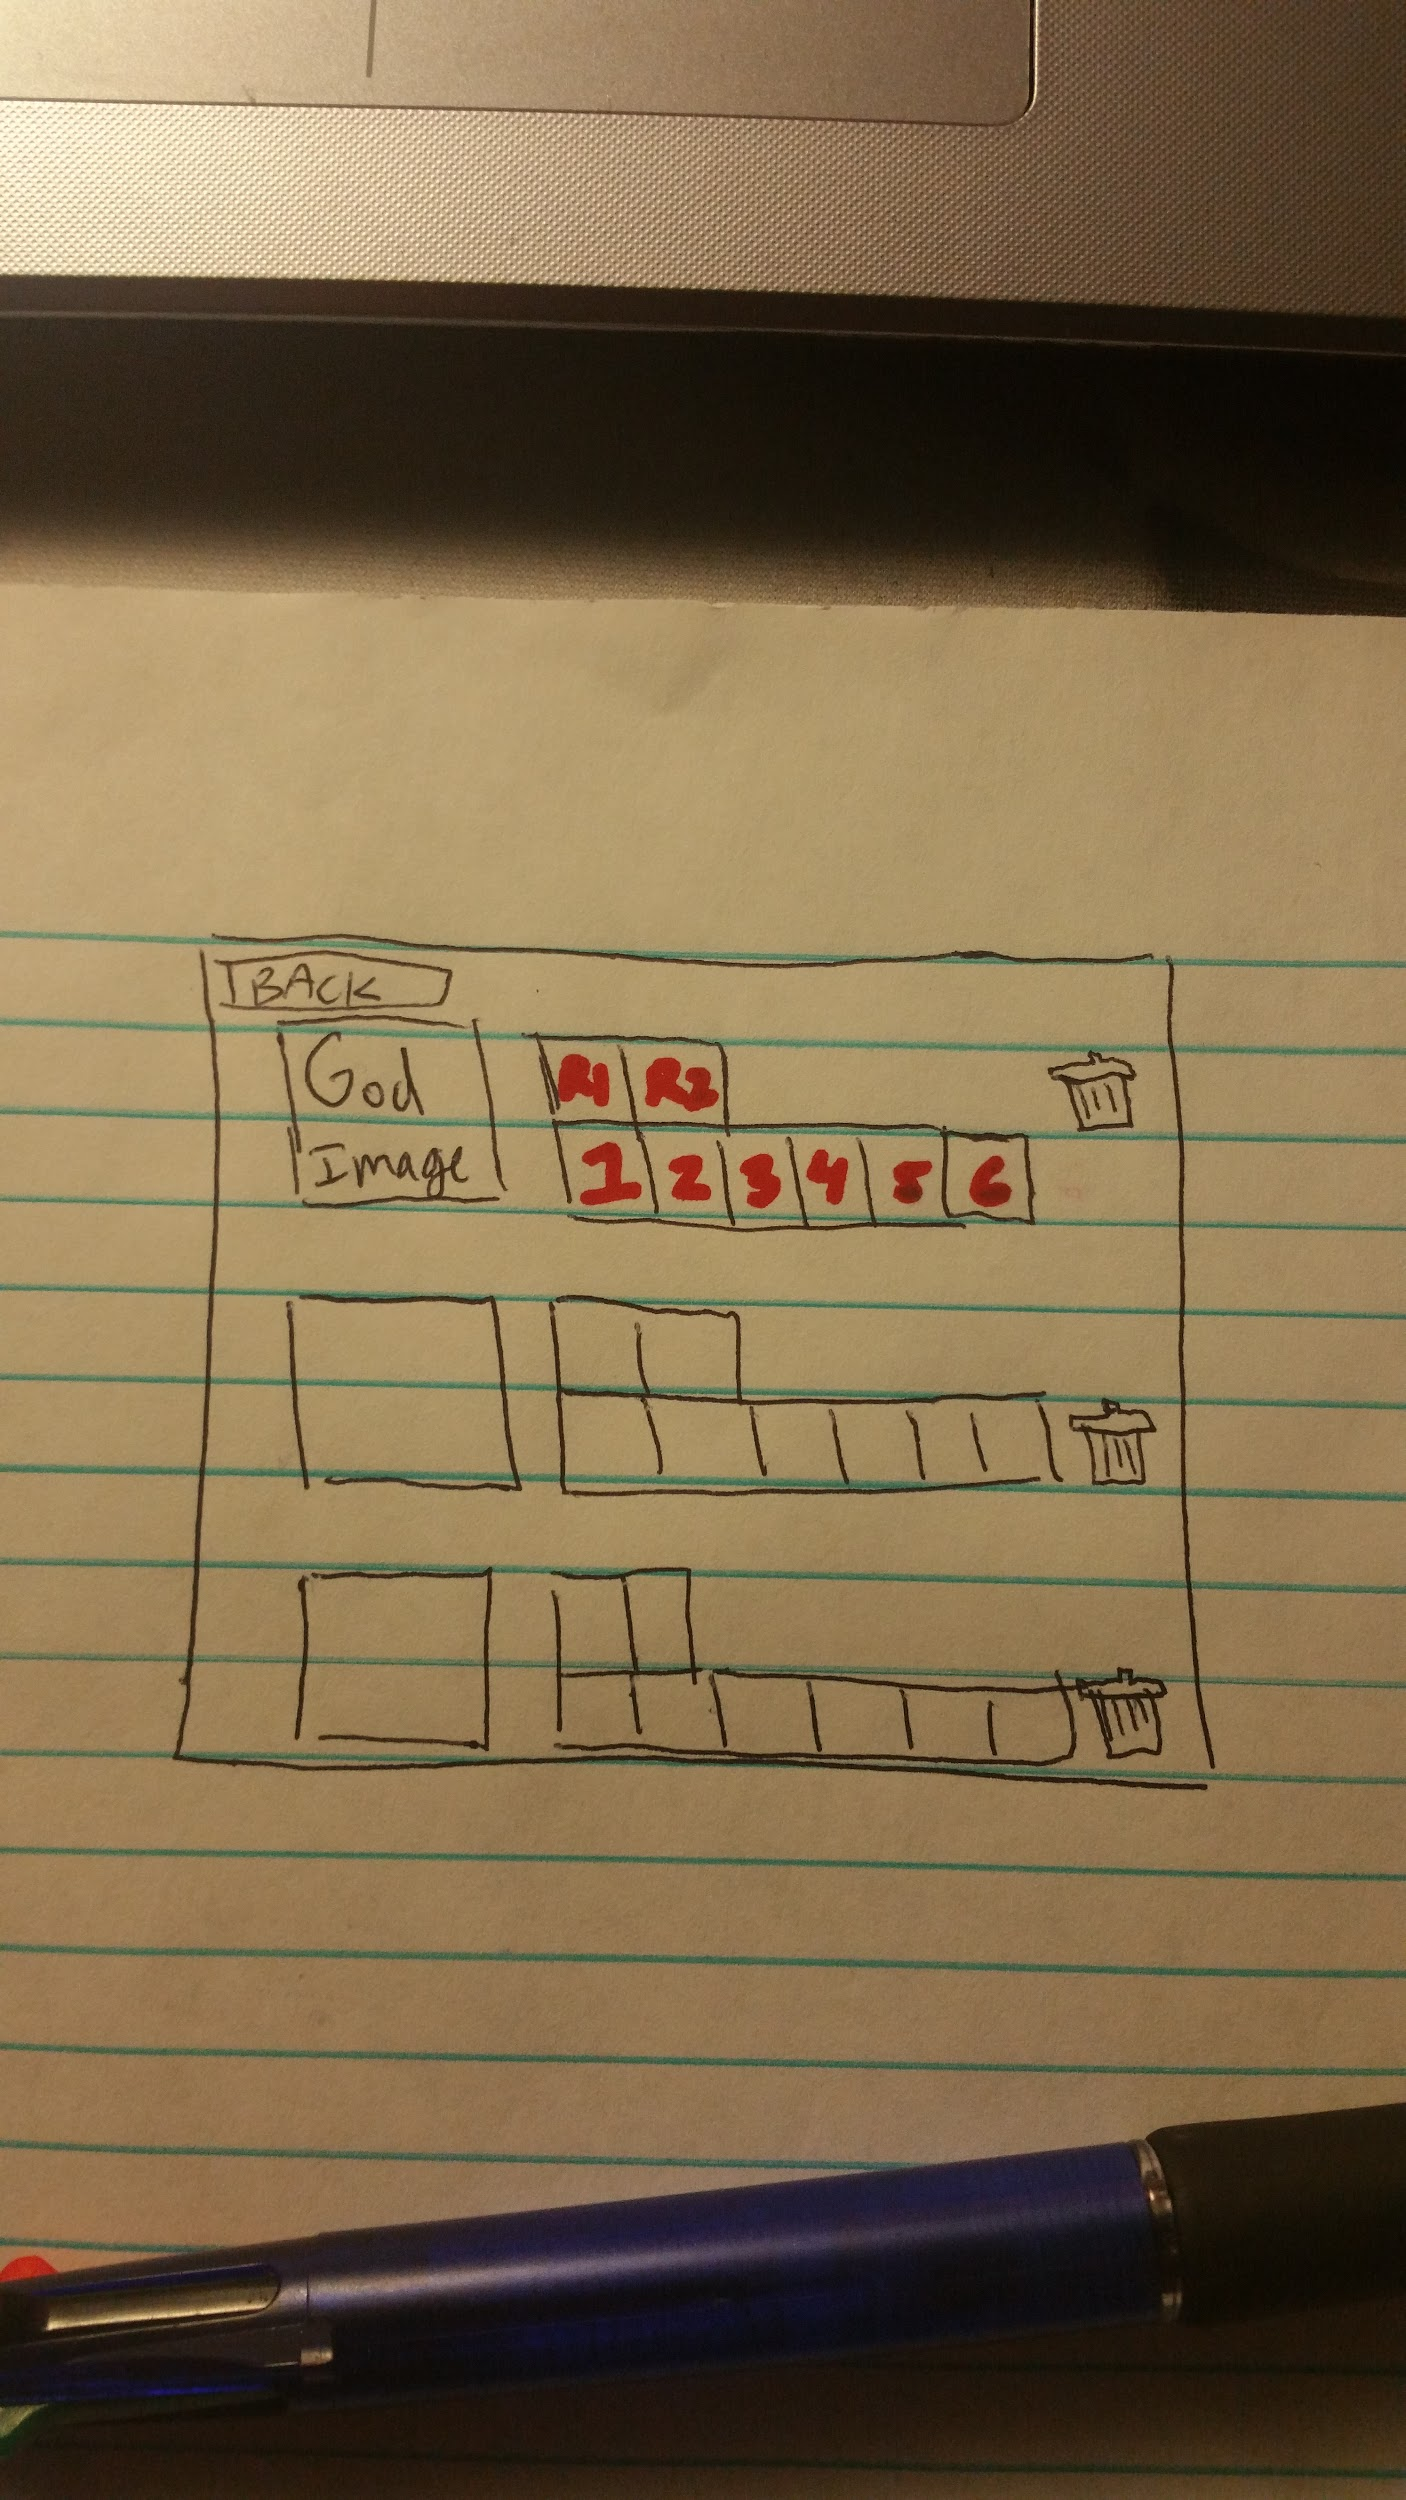 BACK
God
Image
R1 R2
1 2 3 4 5 6